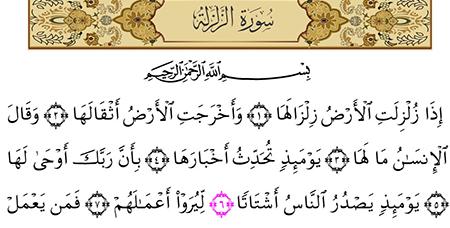 سُورَةُ الزَّلْزَلَةِ
بِسْمِ اللَّهِ الرَّحْمَٰنِ الرَّحِيمِ
إِذَا زُلْزِلَتِ ٱلْأَرْضُ زِلْزَالَهَا ﴿١﴾ وَأَخْرَجَتِ ٱلْأَرْضُ أَثْقَالَهَا ﴿٢﴾ وَقَالَ
ٱلْإِنسَٰنُ مَا لَهَا ﴿٣﴾ يَوْمَئِذٍ تُحَدِّثُ أَخْبَارَهَا ﴿٤﴾ بِأَنَّ رَبَّكَ أَوْحَىٰ لَهَا
﴿٥﴾ يَوْمَئِذٍ يَصْدُرُ ٱلنَّاسُ أَشْتَاتًا ﴿٦﴾ لِّيُرَوْا۟ أَعْمَٰلَهُمْ ﴿٧﴾ فَمَن يَعْمَلْ